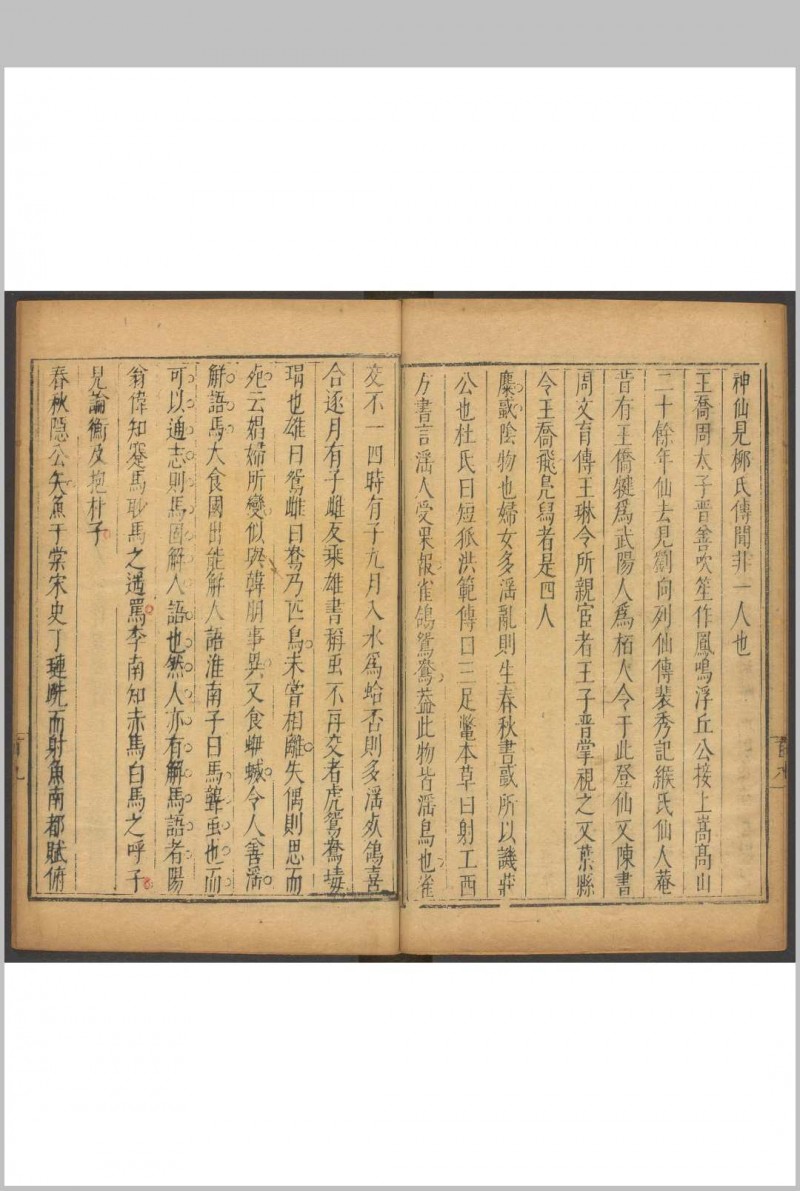 神仙見柳氏傳聞非一人也
王喬周太子晉善吹笙作鳳鳴浮丘公接上嵩高山
二十餘年仙去見劉向列仙傳裴秀記緱氏仙人菴
昔有王僑犍爲武陽人爲栢人令于此登仙又陳書
周文育傳王琳令所親宦者王子晉掌視之又葉縣
令王喬飛鳧舄者是四人
麋蜮陰物也婦女多滛亂則生春秋書蜮所以譏莊
公也杜氏曰短狐洪範傳曰三足鱉本草曰射工西
方書言滛人受果報雀鴿鴛鴦葢此物皆滛鳥也雀
交不一四時有子九月入水爲蛤否則多滛奔鴿喜
合逐月有子雌反乘雄書稱䖝不再交者虎鴛鴦
瑁也雄曰鴛雌曰鴦乃匹鳥未嘗相離失偶則思而
死云娼婦所變似與韓朋事異又食蝍蟻令人善滛
解語馬大食國出能解人語淮南子曰馬聾䖝也而
可以通志則馬固解人語也然人亦有解馬語者陽
翁偉知蹇馬眇馬之遇罵李南知赤馬白馬之呼子
見論衡及抱朴子
春秋隱公矢魚于棠宋史丁璉跣而射魚南都賦俯